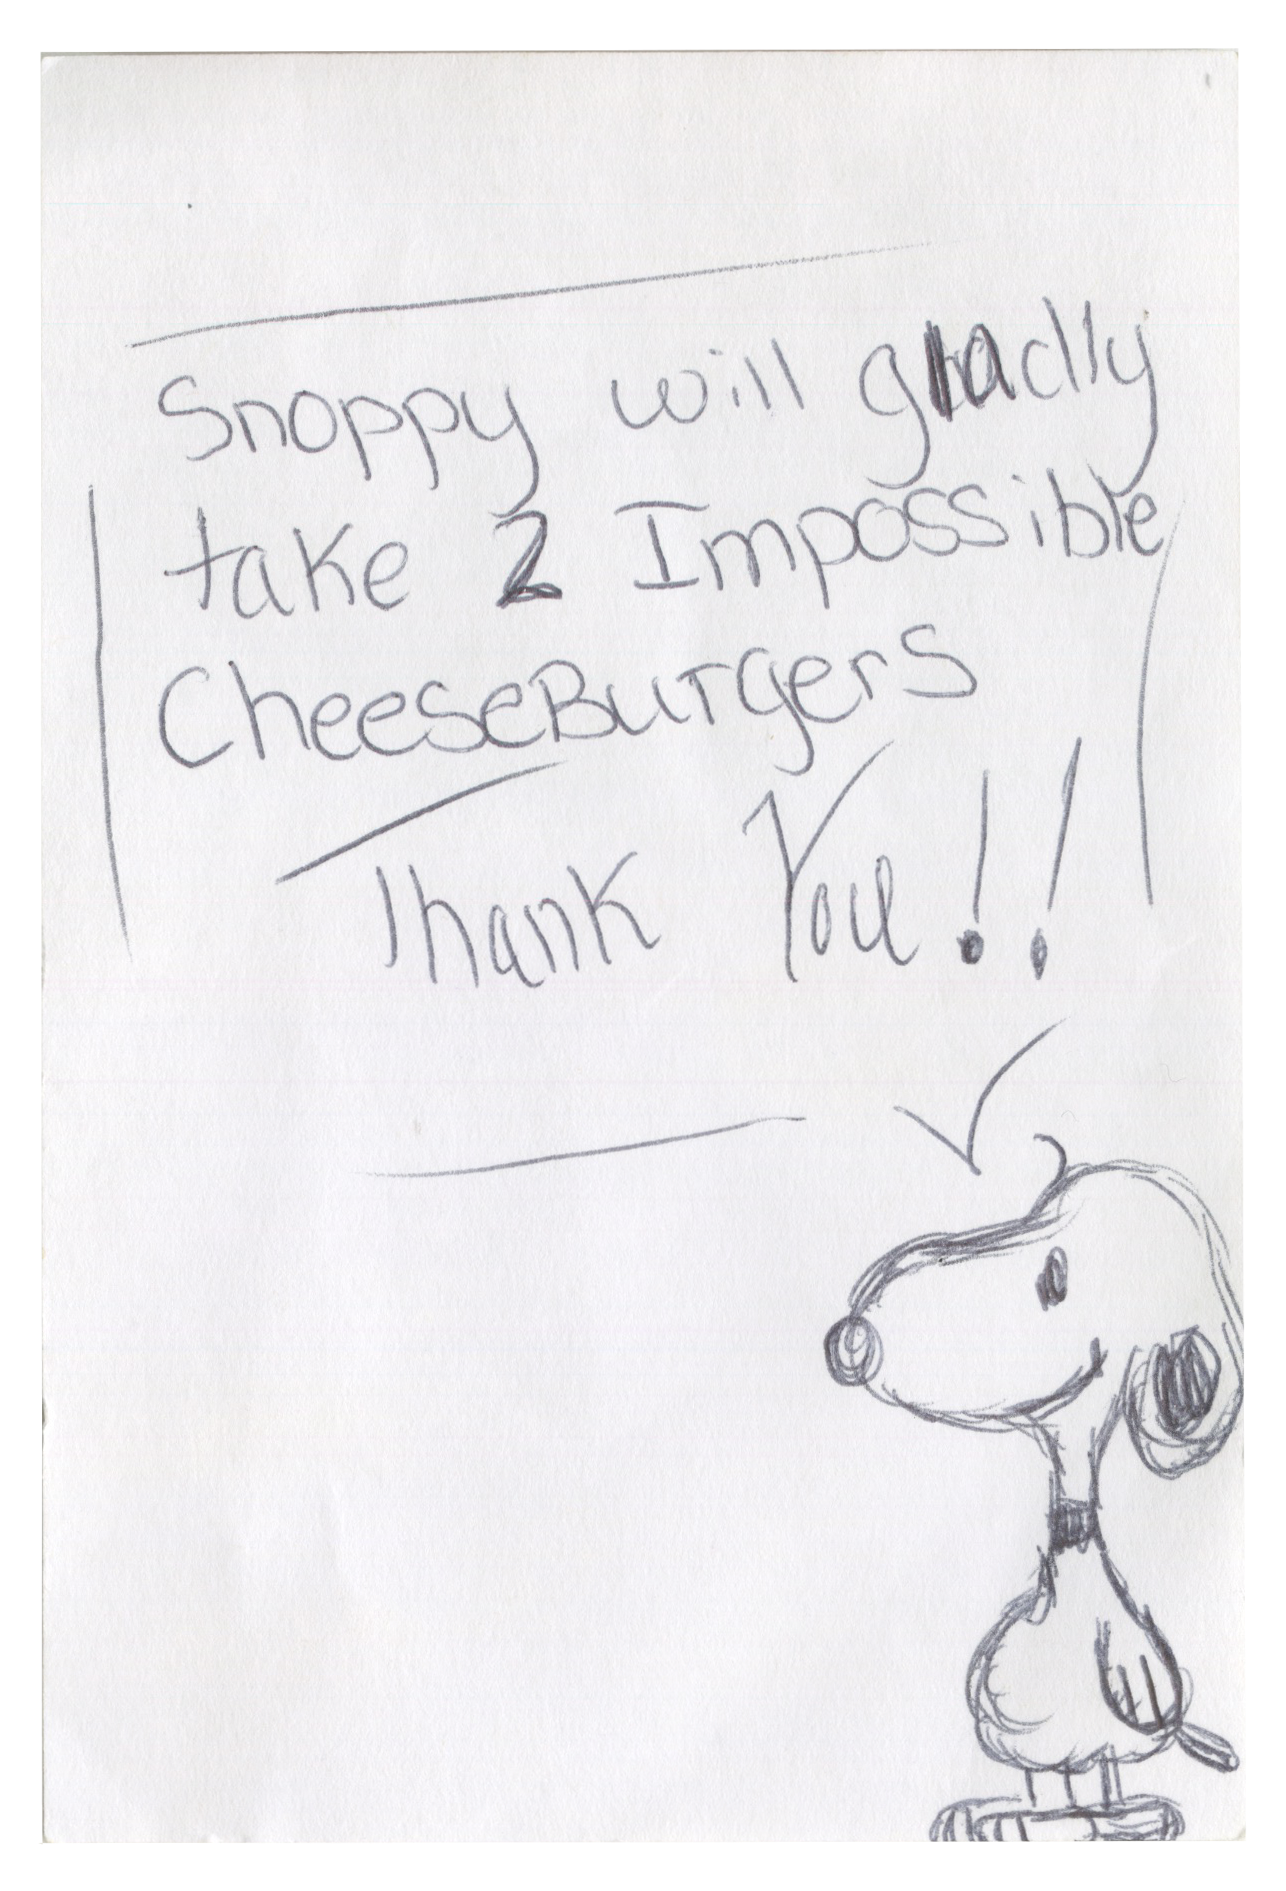 Snoppy will gladly
take 2 Impossible
CheeseBurgers
Thank You!!